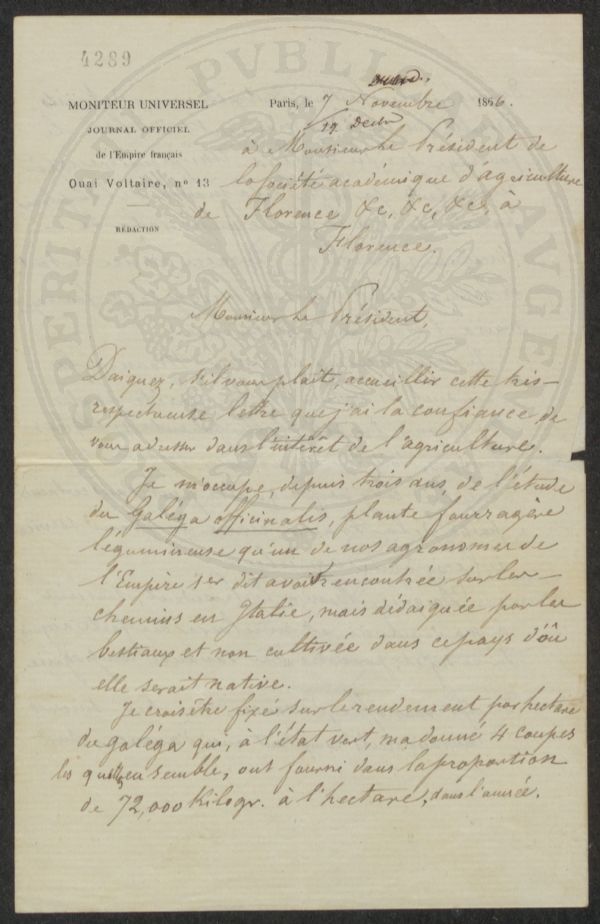 4289
MONITEUR UNIVERSEL
JOURNAL OFFICIEL
de l'Empire français
Quai Voltaire, nº 13
RÉDACTION
Paris, le 7 Novembre 1866.
19 Decbr
à Monsieur le Président de
la Société académique d'agriculture
de Florence &c, &c, &c, à
Florence.
Monsieur le Président,
Daignez, s'il vous plait, accueillir cette très-
respectueuse lettre que j'ai la confiance de
vous adresser dans l'intérêt de l'agriculture.
Je m'occupe, depuis trois ans, de l'étude
du Galéga officinalis, plante fourragère
légumineuse qu'un de nos agronomes de
l'Empire 1er dit avoir rencontrée sur les
chemins en Italie, mais dédaignée par les
bestiaux et non cultivée dans ce pays d'où
elle serait native.
Je crois être fixé sur le rendement par hectare
du galéga qui, à l'état vert, m'a donné 4 coupes
les qu ensemble, ont fourni dans la proportion
de 72,000 Kilogr. à l'hectare, dans l'année.